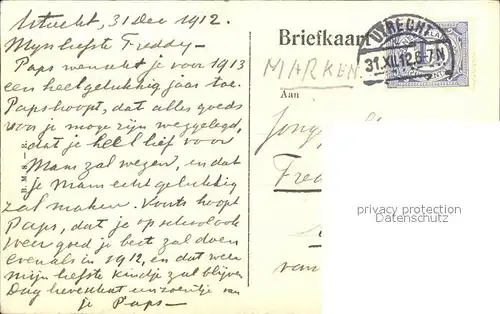 Utrecht, 31 Dec 1912.
Mijn liefste Freddy—
Paps wenscht je voor 1913
een heel gelukkig jaar toe.
Paps hoopt, dat alles goeds
voor je moge zijn weggelegd,
dat je heel lief voor
Mam zal wezen, en dat
je Mam echt gelukkig
zal maken. Voorts hoopt
Paps, dat je op school ook
weer goed je best zal doen
evenals in 1912, en dat weer
mijn liefste kindje zal blijven
Dag hevent een zoentje van
je Paps—
Briefkaart
UTRECHT
31.XII.12.6-7N
MARKEN
Aan
Jong
Fred
van
privacy protection
www.oldthing.com